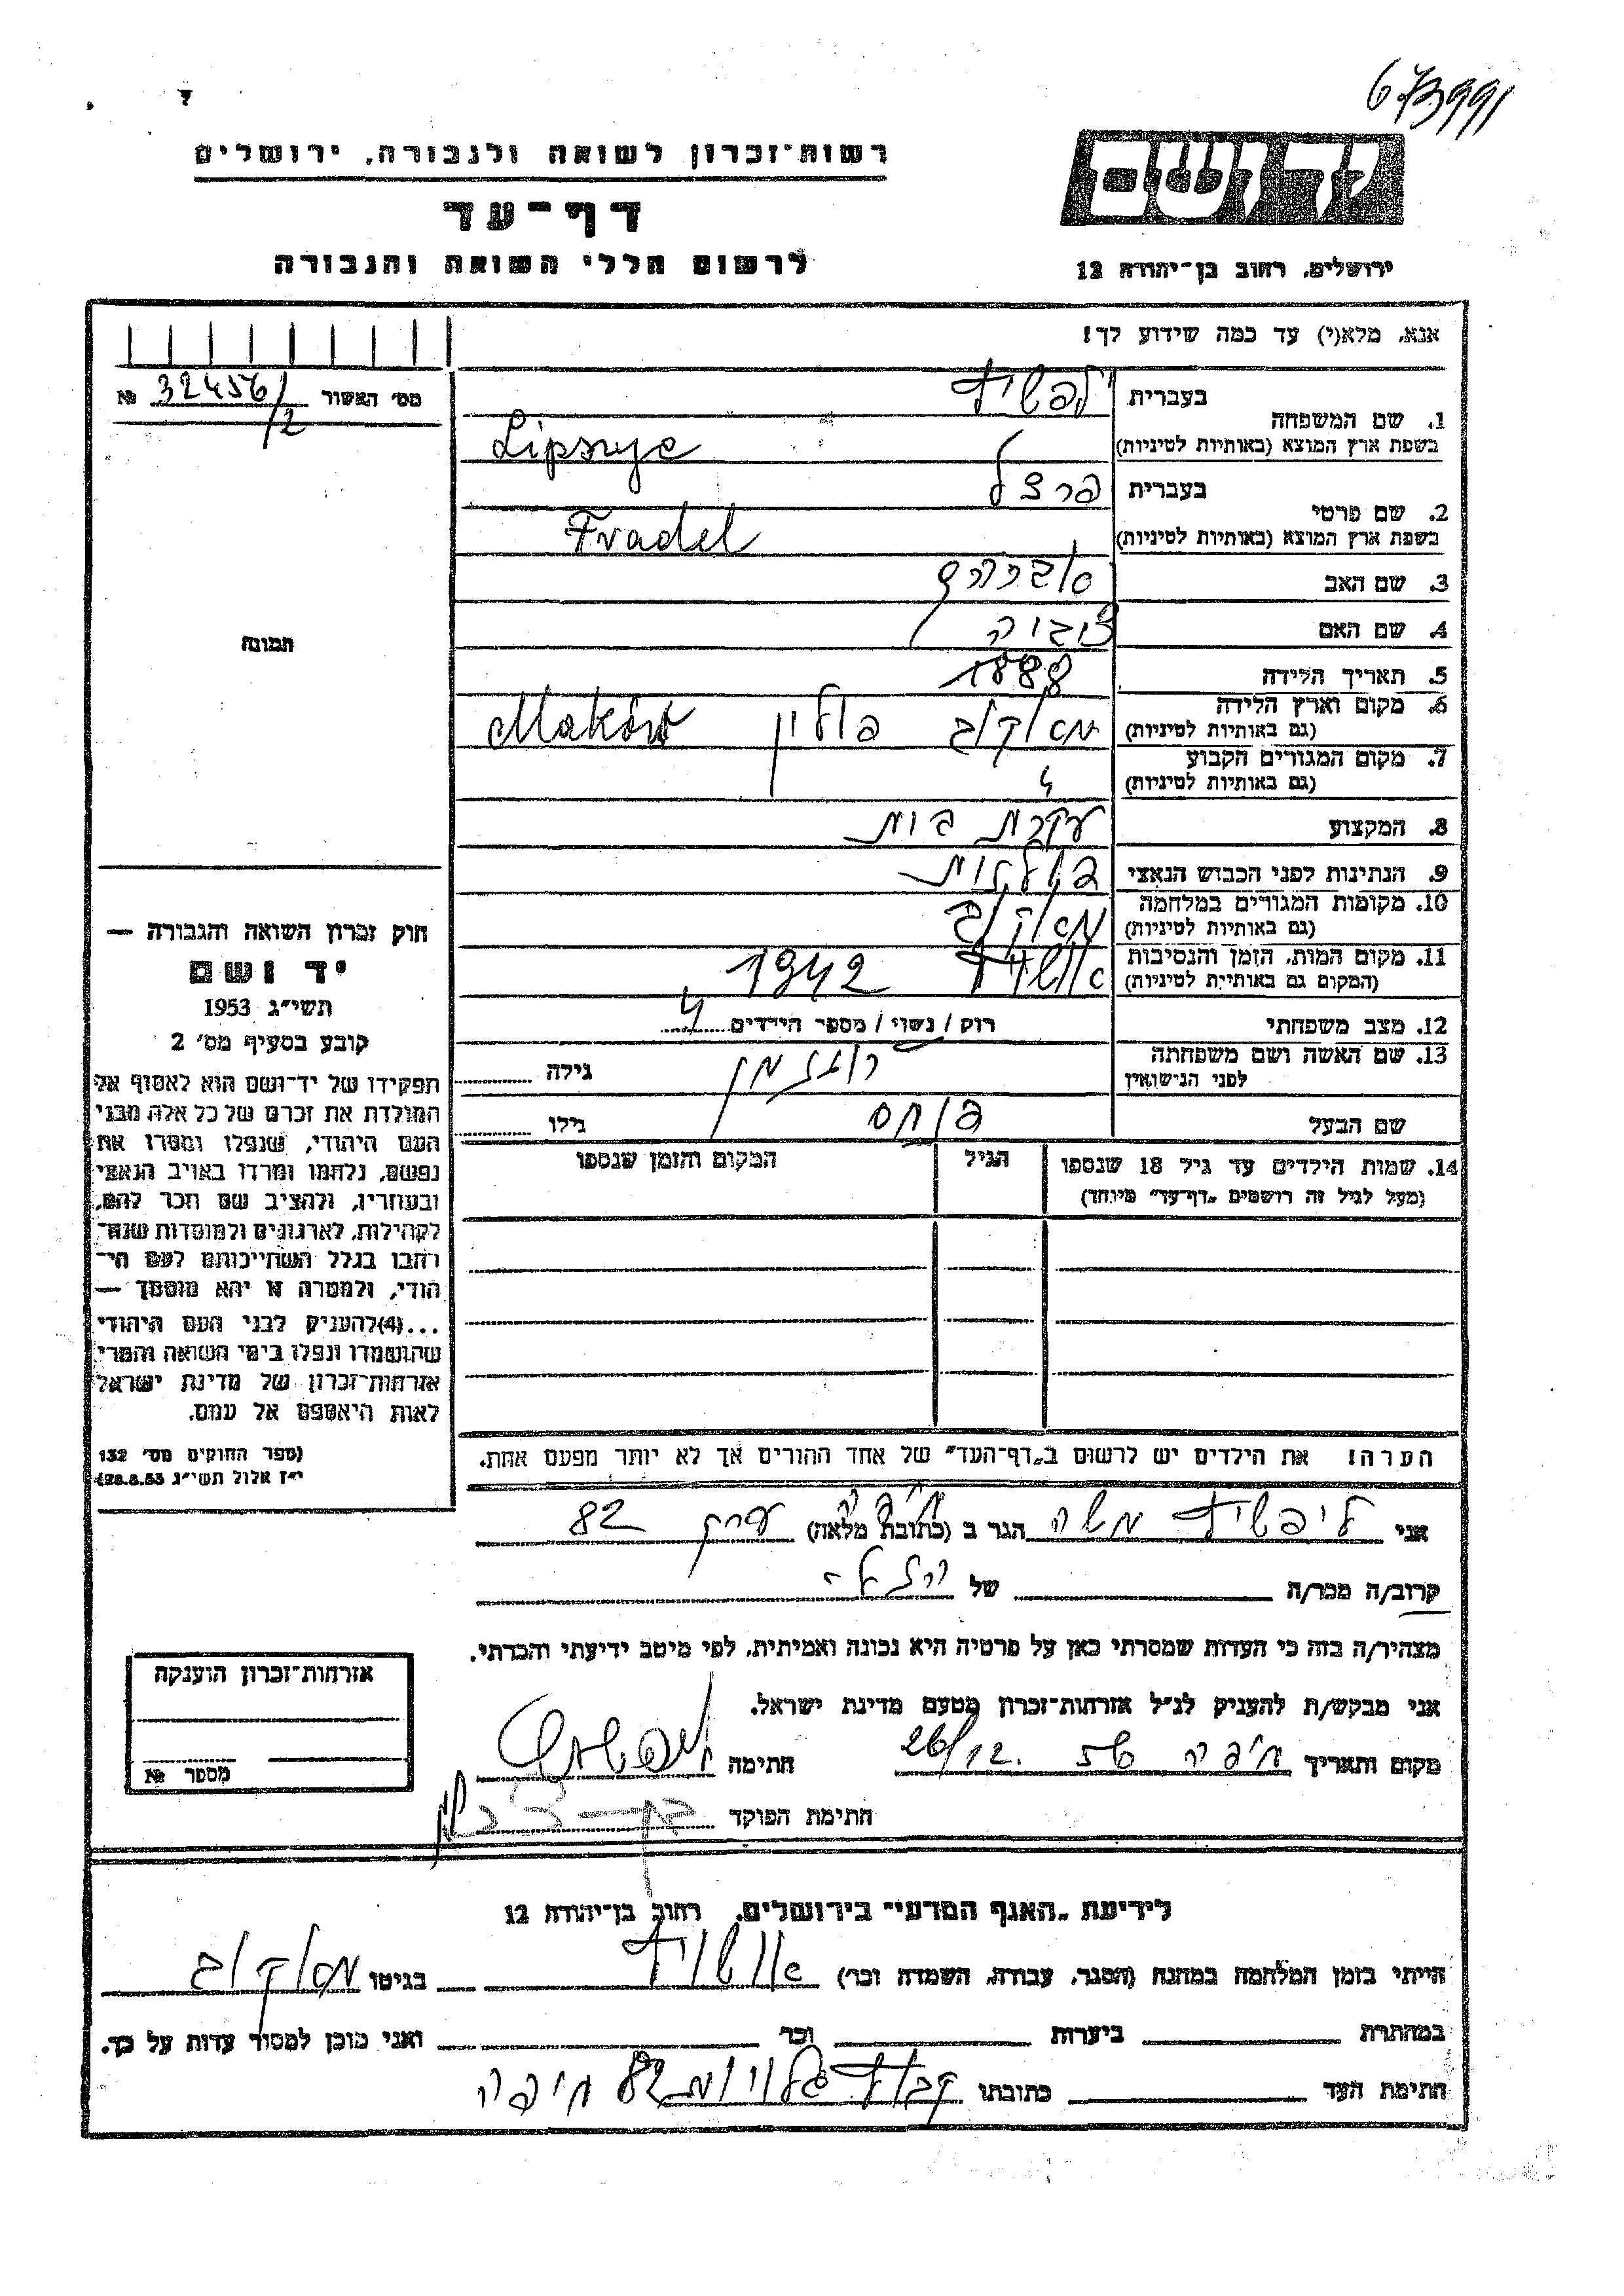 673991
רשות־זכרון לשואה ולגבורה, ירושלים
יד ושם
דף־עד
לרשום חללי השואה והגבורה
ירושלים, רחוב בן־יהודה 12
אנא, מלא(י) עד כמה שידוע לך!
מס' האשור № 32456/2
בעברית
1. שם המשפחה
בשפת ארץ המוצא (באותיות לטיניות) Lipszyc
בעברית
2. שם פרטי
בשפת ארץ המוצא (באותיות לטיניות) Fradel
3. שם האב
4. שם האם צוביה
5. תאריך הלידה 1888
6. מקום וארץ הלידה מאקוב פולין Maków
(גם באותיות לטיניות)
7. מקום המגורים הקבוע "
(גם באותיות לטיניות)
8. המקצוע עקרת בית
9. הנתינות לפני הכבוש הנאצי
10. מקומות המגורים במלחמה מאקוב
(גם באותיות לטיניות)
11. מקום המות, הזמן והנסיבות אושויץ 1942
(המקום גם באותיות לטיניות)
12. מצב משפחתי רוק / נשוי / מספר הילדים 4
13. שם האשה ושם משפחתה
לפני הנישואין גילה
שם הבעל פנחס גילו
14. שמות הילדים עד גיל 18 שנספו הגיל המקום והזמן שנספו
(מעל לגיל זה רושמים „דף־עד" מיוחד)
הערה! את הילדים יש לרשום ב„דף־העד" של אחד ההורים אך לא יותר מפעם אחת.
תמונה
חוק זכרון השואה והגבורה —
יד ושם
תשי"ג 1953
קובע בסעיף מס' 2
תפקידו של יד־ושם הוא לאסוף אל
המולדת את זכרם של כל אלה מבני
העם היהודי, שנפלו ומסרו את
נפשם, נלחמו ומרדו באויב הנאצי
ובעוזריו, ולהציב שם וזכר להם,
לקהילות, לארגונים ולמוסדות שנח־
רבו בגלל השתייכותם לעם הי־
הודי, ולמטרה זו יהא מוסמך —
...(4)להעניק לבני העם היהודי
שהושמדו ונפלו בימי השואה והמרי
אזרחות־זכרון של מדינת ישראל
לאות היאספם אל עמם.
(ספר החוקים מס' 132
י"ז אלול תשי"ג 28.8.53)
אני ליפשיץ משה הגר ב (כתובת מלאה) חיפה 82
קרוב/ה מכר/ה של
מצהיר/ה בזה כי העדות שמסרתי כאן על פרטיה היא נכונה ואמיתית, לפי מיטב ידיעתי והכרתי.
אני מבקש/ת להעניק לנ"ל אזרחות־זכרון מטעם מדינת ישראל.
מקום ותאריך חיפה 26/12. חתימה
חתימת הפוקד
אזרחות־זכרון הוענקה
מספר №
לידיעת „האגף המדעי" בירושלים, רחוב בן־יהודה 12
הייתי בזמן המלחמה במחנה (הסגר, עבודה, השמדה וכו') אושויץ בגיטו מאקוב
במחתרת ביערות וכו' ואני מוכן למסור עדות על כך.
חתימת העד כתובתו קבוץ גלויות 82 חיפה